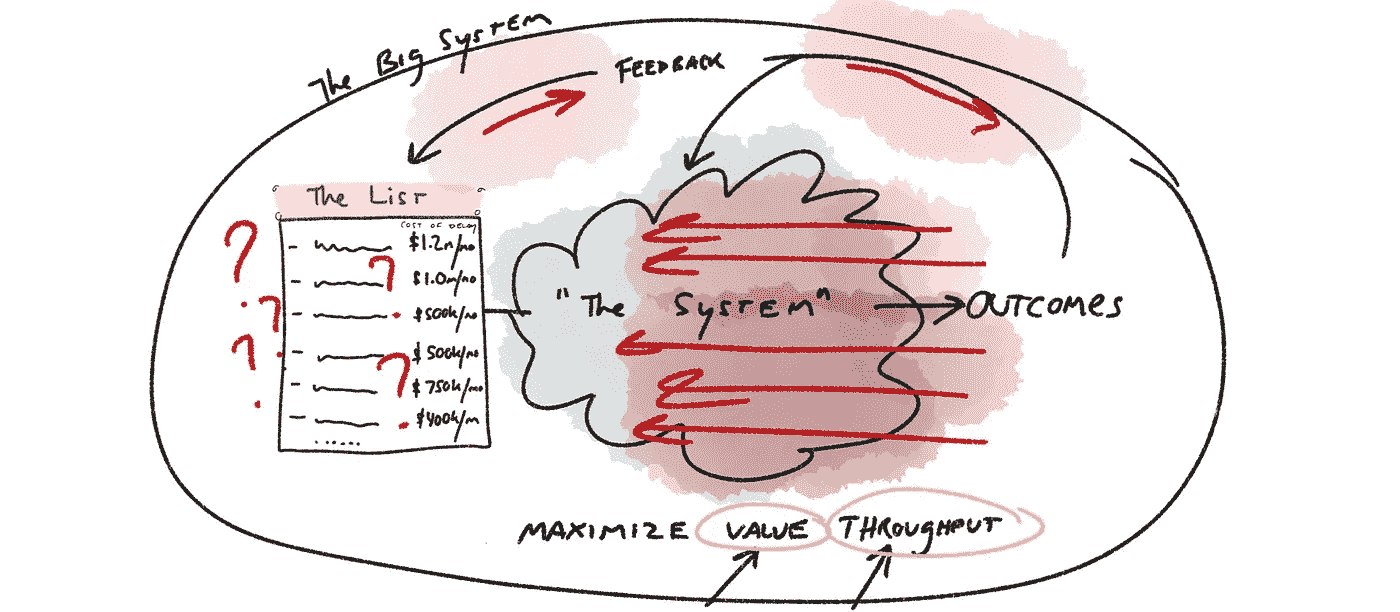 The Big System
FEEDBACK
The List
COST OF DELAY
$1.2m/mo
$1.0m/mo
$500k/mo
$500k/mo
$750k/mo
$400k/m
?
?
?
?
?
"The System"
OUTCOMES
MAXIMIZE VALUE THROUGHPUT